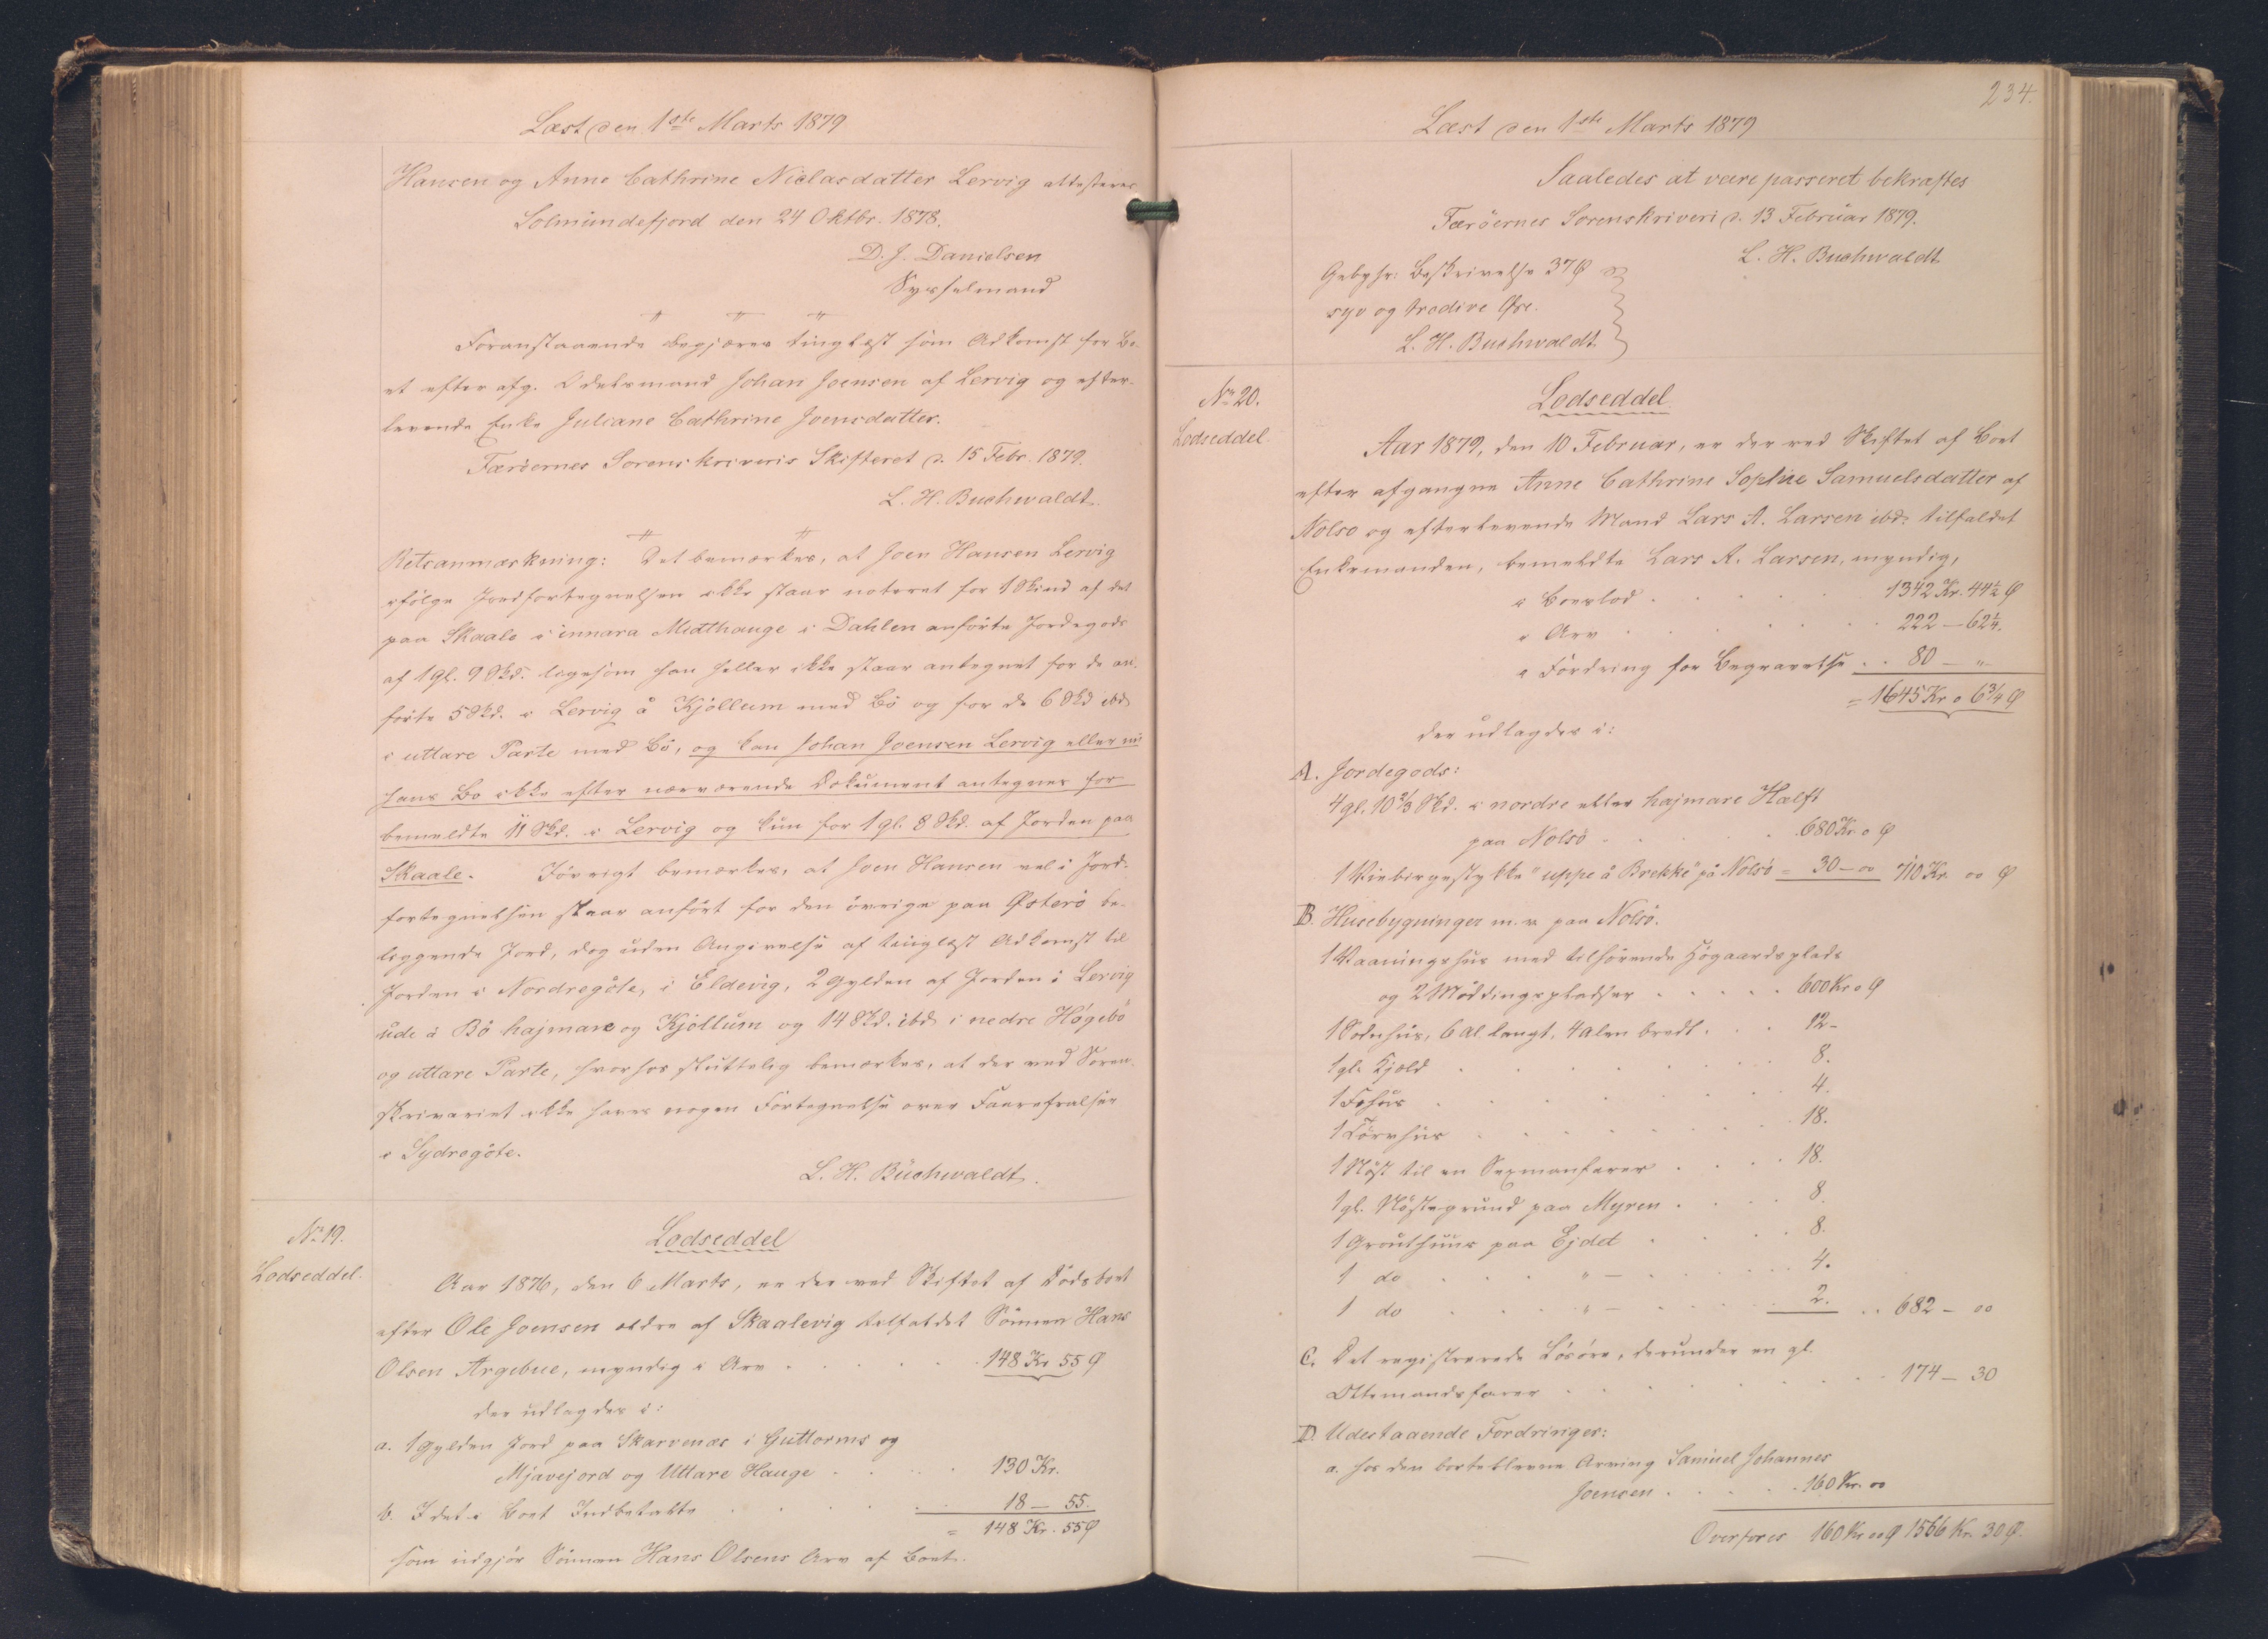 Læst den 1ste Marts 1879
Hansen og Anne Cathrine Niclasdatter Lervig attesteres
Solmundefjord den 24 Oktbr. 1878.
D. J. Danielsen
Sysselmand
Foranstaaende begjæres tinglæst som Adkomst for Bo-
et efter afg. Odelsmand Johan Joensen af Lervig og efter-
levende Enke Juliane Cathrine Joensdatter.
Færöernes Sorenskriveris Skifteret d. 15 Febr. 1879.
L. H. Buchwaldt.
Retsanmærkning: Det bemærkes, at Joen Hansen Lervig
ifölge Jordfortegnelsen ikke staar noteret for 1 Skind af det
paa Skaale i innara Midthauge i Dahlen anförte Jordegods
af 1 gl. 9 Skd. ligesom han heller ikke staar antegnet for de an-
förte 5 Skd. i Lervig å Kjöllum med Bö og for de 6 Skd ibd
i uttare Parte med Bö, og kan Johan Joensen Lervig eller nu
hans Bo ikke efter nærværende Dokument antegnes for
bemeldte 11 Skd. i Lervig og kun for 1 gl. 8 Skd. af Jorden paa
Skaale. Iövrigt bemærkes, at Joen Hansen vel i Jord-
fortegnelsen staar anfört for den övrige paa Østerö be-
liggende Jord, dog uden Angivelse af tinglæst Adkomst til
Jorden i Nordregöte, i Eldevig, 2 Gylden af Jorden i Lervig
ude å Bö hajmare og Kjöllum og 14 Skd. ibd i nedre Högebö
og uttare Parte, hvorhos sluttelig bemærkes, at der ved Soren-
skriveriet ikke haves nogen Fortegnelse over
i Sydregöte.
L. H. Buchwaldt.
No 19.
Lodseddel
Lodseddel
Aar 1876, den 6 Marts, er der ved Skiftet af Dödsboet
efter Ole Joensen ældre af Skaalevig tilfaldet Sönnen Hans
Olsen Argebue, myndig i Arv . . . . . 148 Kr 55 Ø
der udlagdes i:
a. 1 Gylden Jord paa Skarvenæs i Guttorms og
Mjavejord og Uttare Hauge . . . . 130 Kr.
b. I det i Boet Indbetalte . . . . . 18 — 55.
= 148 Kr. 55 Ø
som udgjör Sönnen Hans Olsens Arv af Boet.
234.
Læst den 1ste Marts 1879
Saaledes at være passeret bekræftes
Færöernes Sorenskriveri d. 13 Februar 1879.
L. H. Buchwaldt
Gebyhr: Beskrivelse 37 Ø
syv og tredive Øre.
L. H. Buchwaldt
No 20.
Lodseddel
Lodseddel
Aar 1879, den 10 Februar, er der ved Skiftet af Boet
efter afgangne Anne Cathrine Sophie Samuelsdatter af
Nolsö og efterlevende Mand Lars A. Larsen ibd. tilfaldet
Enkemanden, bemeldte Lars A. Larsen, myndig,
i Boeslod . . . . . 1342 Kr. 44½ Ø
i Arv . . . . . . 222 — 62¼.
i Fordring for Begravelse . . 80 — "
= 1645 Kr o 6¾ Ø
der udlagdes i:
A. Jordegods:
4 gl. 10⅔ Skd. i nordre eller hajmare Hælft
paa Nolsö . . . . . 680 Kr. o Ø
1 "uppe å Brekke" på Nolsö = 30 — oo 710 Kr oo Ø
B. Husebygninger m. v. paa Nolsö.
1 Vaaningshus med tilhörende Högaardsplads
og 2 Möddingspladser . . . . . 600 Kr o Ø
1 Sodnhus, 6 al langt, 4 alen bredt . . . 12 -
1 gl. Kjold . . . . . . 8.
1 Fehus . . . . . . . 4.
1 Törvhus . . . . . . . 18.
1 Nöst til en Sexmanfarer . . . . 18.
1 gl. Nöstegrund paa Myren . . . . 8.
1 Grouthuus paa Ejdet . . . . 8.
1 do . . . . " — . . . . 4.
1 do . . . . " — . . . . 2. . . 682 — oo
C. Det registrerede Lösöre, derunder en gl.
Ottemandsfarer . . . . . . . 174 — 30
D. Udestaaende Fordringer:
a. hos den Arving Samuel Johannes
Joensen . . . . . 160 Kr. oo
Overføres 160 Kr oo Ø 1566 Kr. 30 Ø.